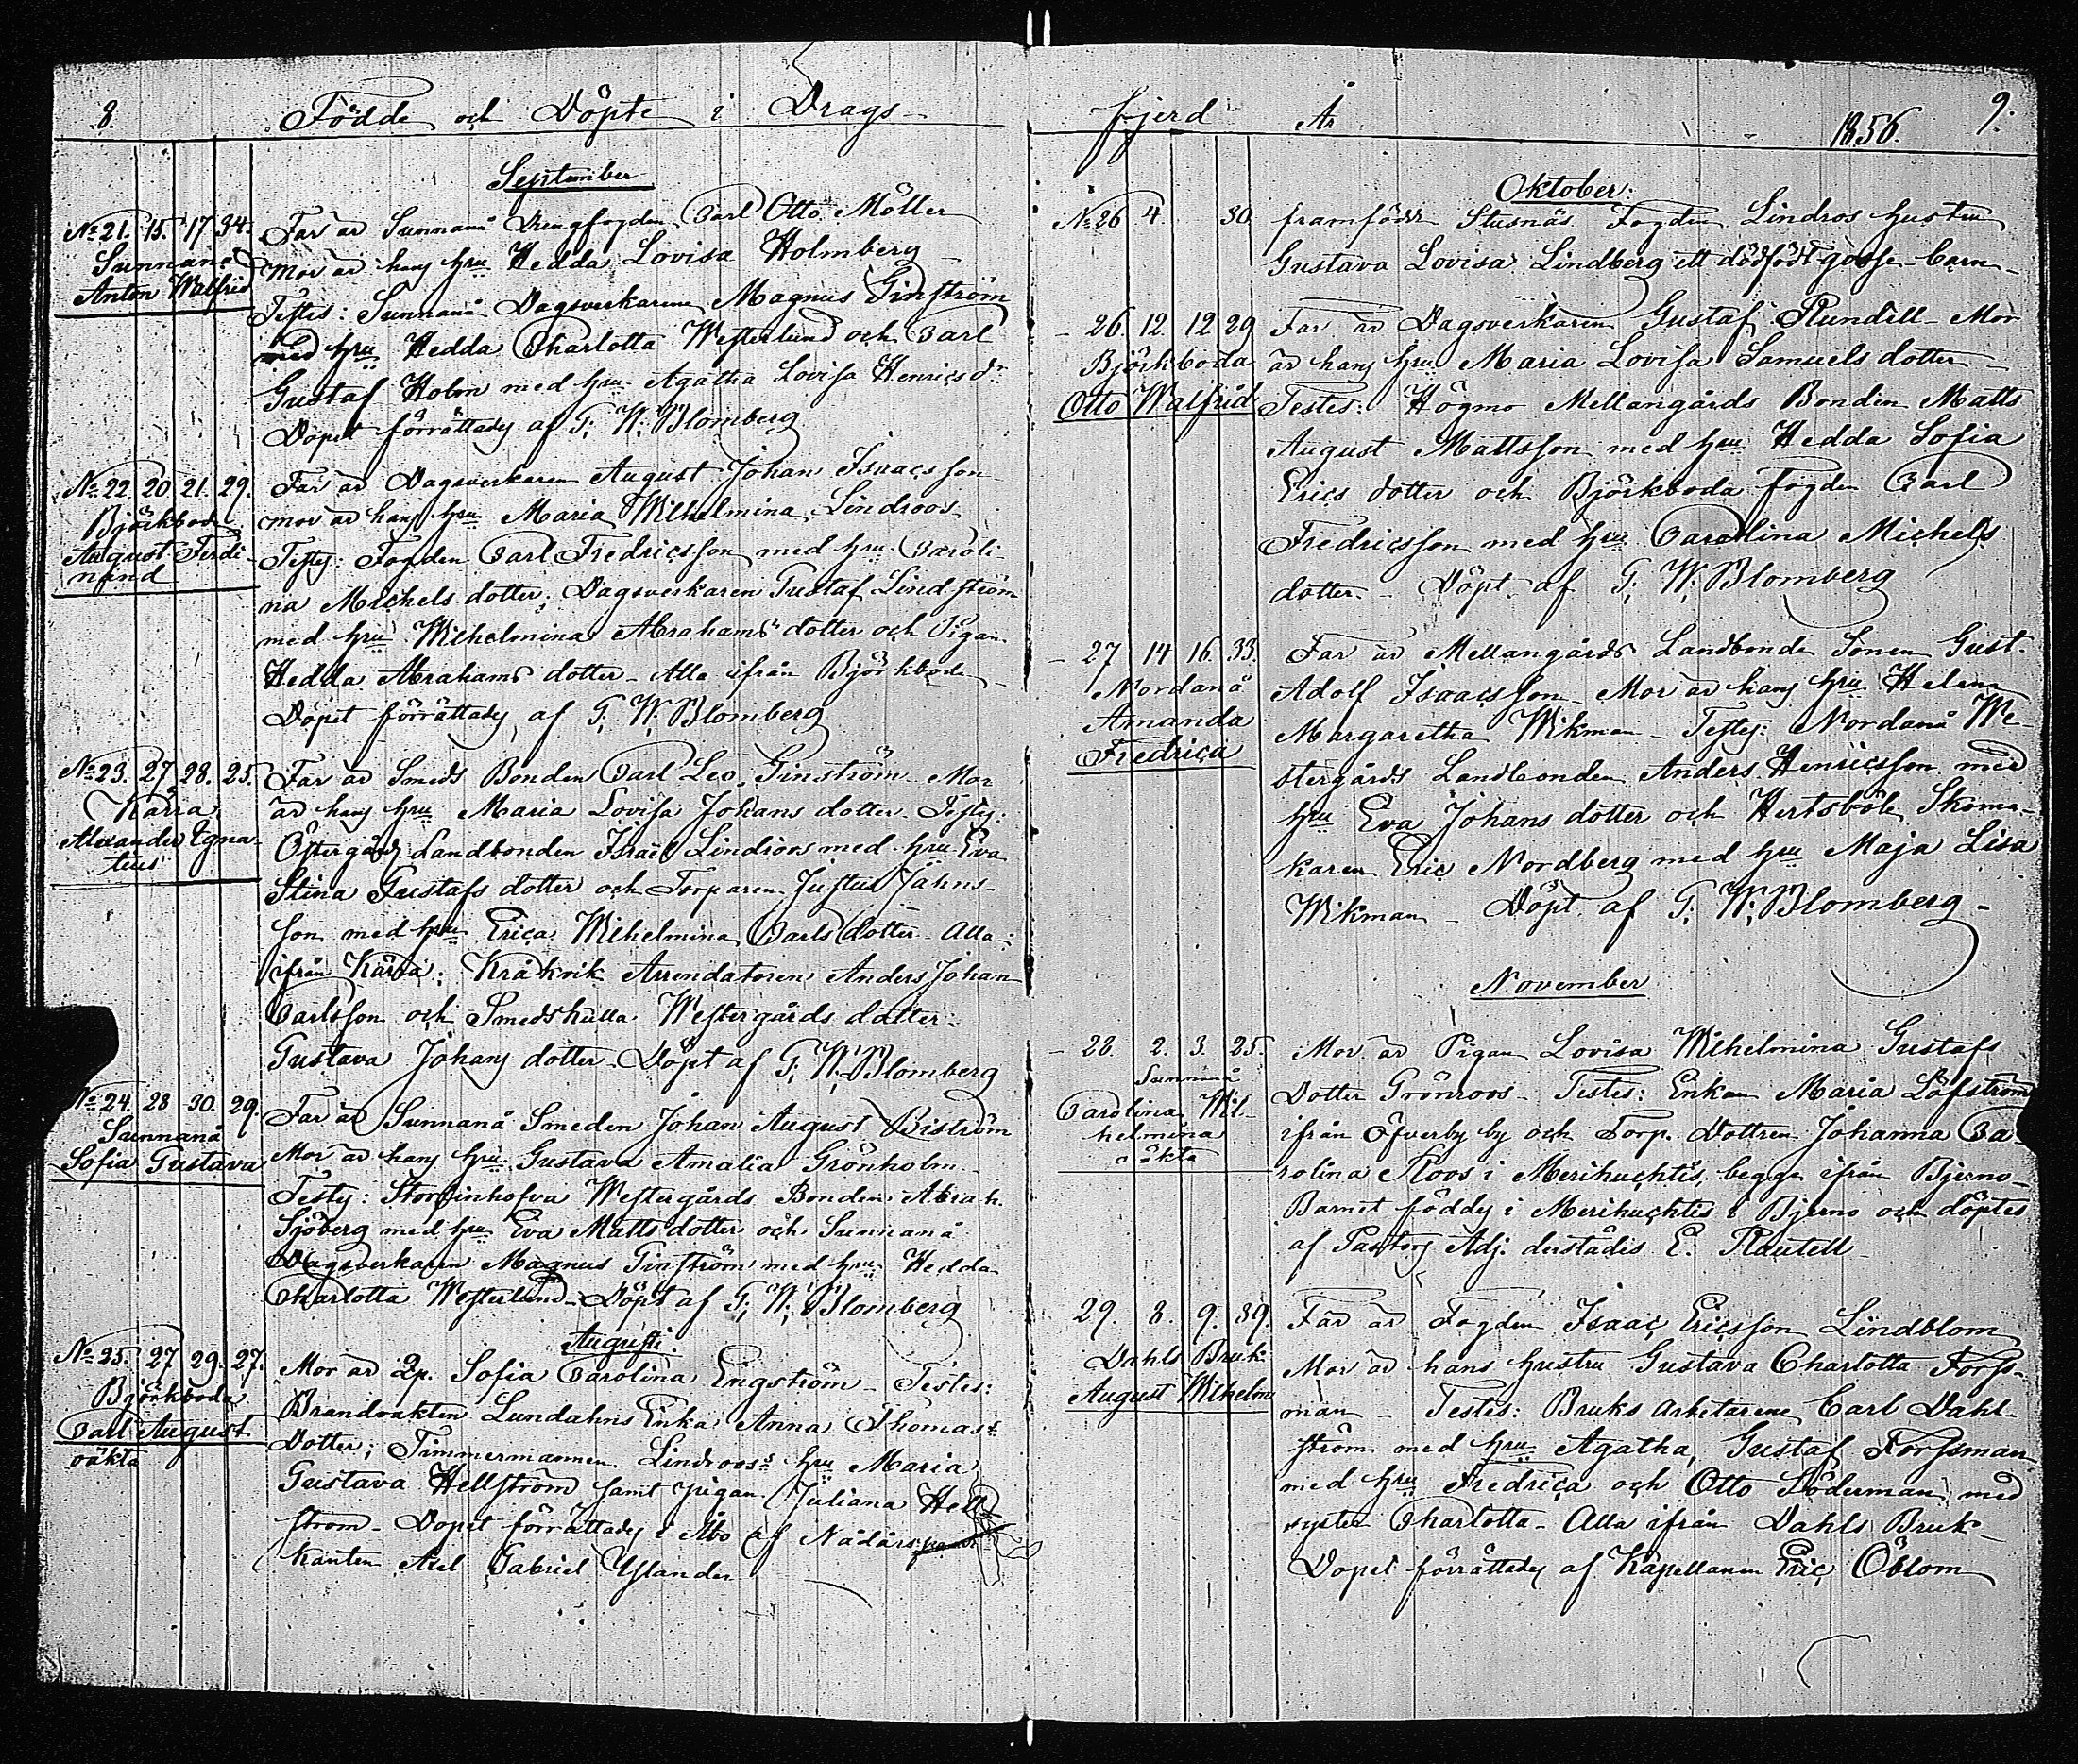 8. Födde och Döpte i Drags-
September
No 21. 15. 17 34.
Sunnanå
Anton Walfrid
Far är Sunnanå Drengfogden Carl Otto Möller
Mor är hans hru Hedda Lovisa Holmberg
Testes: Sunnanå Dagsverkarene Magnus Ginström
med hru Hedda Charlotta Westerlund och Carl
Gustaf Holm med hru Agatha Lovisa Henricsdr
Döpet förrättades af G. W. Blomberg
No 22 20 21. 29.
Björkboda
August Ferdi-
nand
Far är Dagsverkaren August Johan Isacsson
mor är hans hru Maria Wilhelmina Lindroos
Testes: Fogden Carl Fredricsson med hru Caroli-
na Michels dotter; Dagsverkaren Gustaf Lindström
med hru Wilhelmina Abrahams dotter och Pigan
Hedda Abrahams dotter - Alla ifrån Björkboda
Döpet förrättades af G. W. Blomberg
No 23. 27 28. 25.
Kärra
Alexander Egna-
tius
Far är Smeds Bonden Carl Leo Ginström - Mor
är hans hru Maria Lovisa Johans dotter. Testes:
Östergårds Landbonden Israel Lindroos med hru Eva
Stina Gustafs dotter och Torparen Justus Jahns-
son med hru Erica Wilhelmina Carls dotter - Alla
ifrån Kärra; Kråkvik Arrendatoren Anders Johan
Carlsson och Smedskulla Westergårds dotter
Gustava Johans dotter - Döpt af G. W. Blomberg
No 24. 28 30. 29.
Sunnanå
Sofia Gustava
Far är Sunnanå Smeden Johan August Biström
Mor är hans hru Gustava Amalia Grönholm
Testes: Storfinhofva Westergårds Bonden Abrah.
Sjöberg med hru Eva Matts dotter och Sunnanå
Dagsverkaren Magnus Ginström med hru Hedda
Charlotta Westerlund - Döpt af G. W. Blomberg
Augusti.
No 25. 27 29. 27.
Björkboda
Carl August
oäkta
Mor är Qp. Sofia Carolina Engström - Testes:
Brandvakten Lundahns Enka Anna Thomas
Dotter; Timmermannen Lindrooss hru Maria
Gustava Hellström samt pigan Juliana Hell-
ström - Döpet förrättades i Åbo af Nådårspredi
kanten Axel Gabriel Yslander
fjerd År 1856. 9.
Oktober.
No 26 4 30
framfödde Stusnäs Fogden Lindros hustru
Gustava Lovisa Lindberg ett dödfödt gosse-barn
- 26. 12 12 29
Björkboda
Otto Walfrid
Far är Dagsverkaren Gustaf Rundell - Mor
är hans hru Maria Lovisa Samuels dotter -
Testes: Högmo Mellangårds Bonden Matts
August Mattsson med hru Hedda Sofia
Erics dotter och Björkboda fogden Carl
Fredricsson med hru Carolina Michels
dotter. - Döpt af G. W. Blomberg
- 27 14 16. 33.
Nordanå
Amanda
Fredrica
Far är Mellangårds Landbonde Sonen Gust.
Adolf Isaacsson - Mor är hans hru Helena
Margaretha Wikman - Testes: Nordanå We-
stergårds Landbonden Anders Henricsson med
hru Eva Johans dotter och Hertsböle Skoma-
karen Eric Nordberg med hru Maja Lisa
Wikman - Döpt af G. W. Blomberg -
November
- 28. 2. 3. 25.
Sunnanå
Carolina Wil-
helmina
oäkta
Mor är Pigan Lovisa Wilhelmina Gustafs
Dotter Grönroos - Testes: Enkan Maria Löfström
ifrån Öfverby by och Torp. Dottren Johanna Ca
rolina Roos i Merihuchtis, begge ifrån Bjerno -
Barnet föddes i Merihuchtis i Bjerno och döptes
af Pastors Adj. derstädes E. Rautell -
29. 8. 9. 39.
Dahls Bruk
August Wilhelm
Far är Fogden Isaac Ericsson Lindblom
Mor är hans hustru Gustava Charlotta Forss-
man - Testes: Bruks arbetarene Carl Dahl-
ström med hru Agatha, Gustaf Forssman
med hru Fredrica och Otto Söderman med
syster Charlotta - Alla ifrån Dahls Bruk -
Döpet förrättades af Kapellanen Eric Öblom